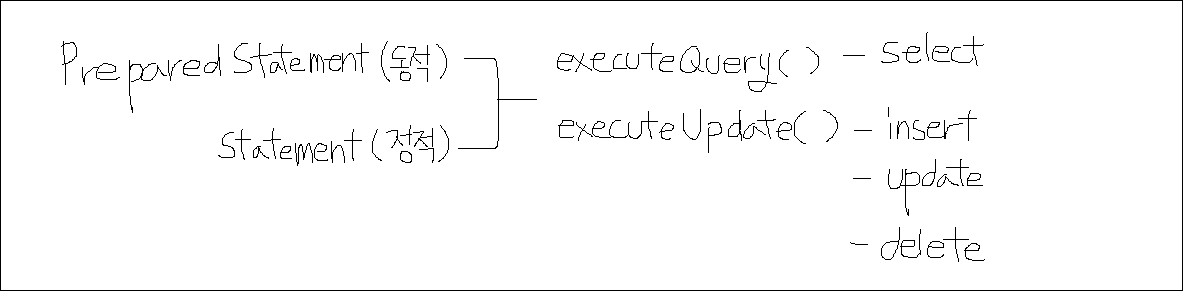 Prepared Statement (동적)
Statement (정적)
executeQuery( ) - select
executeUpdate( ) - insert
- update
- delete